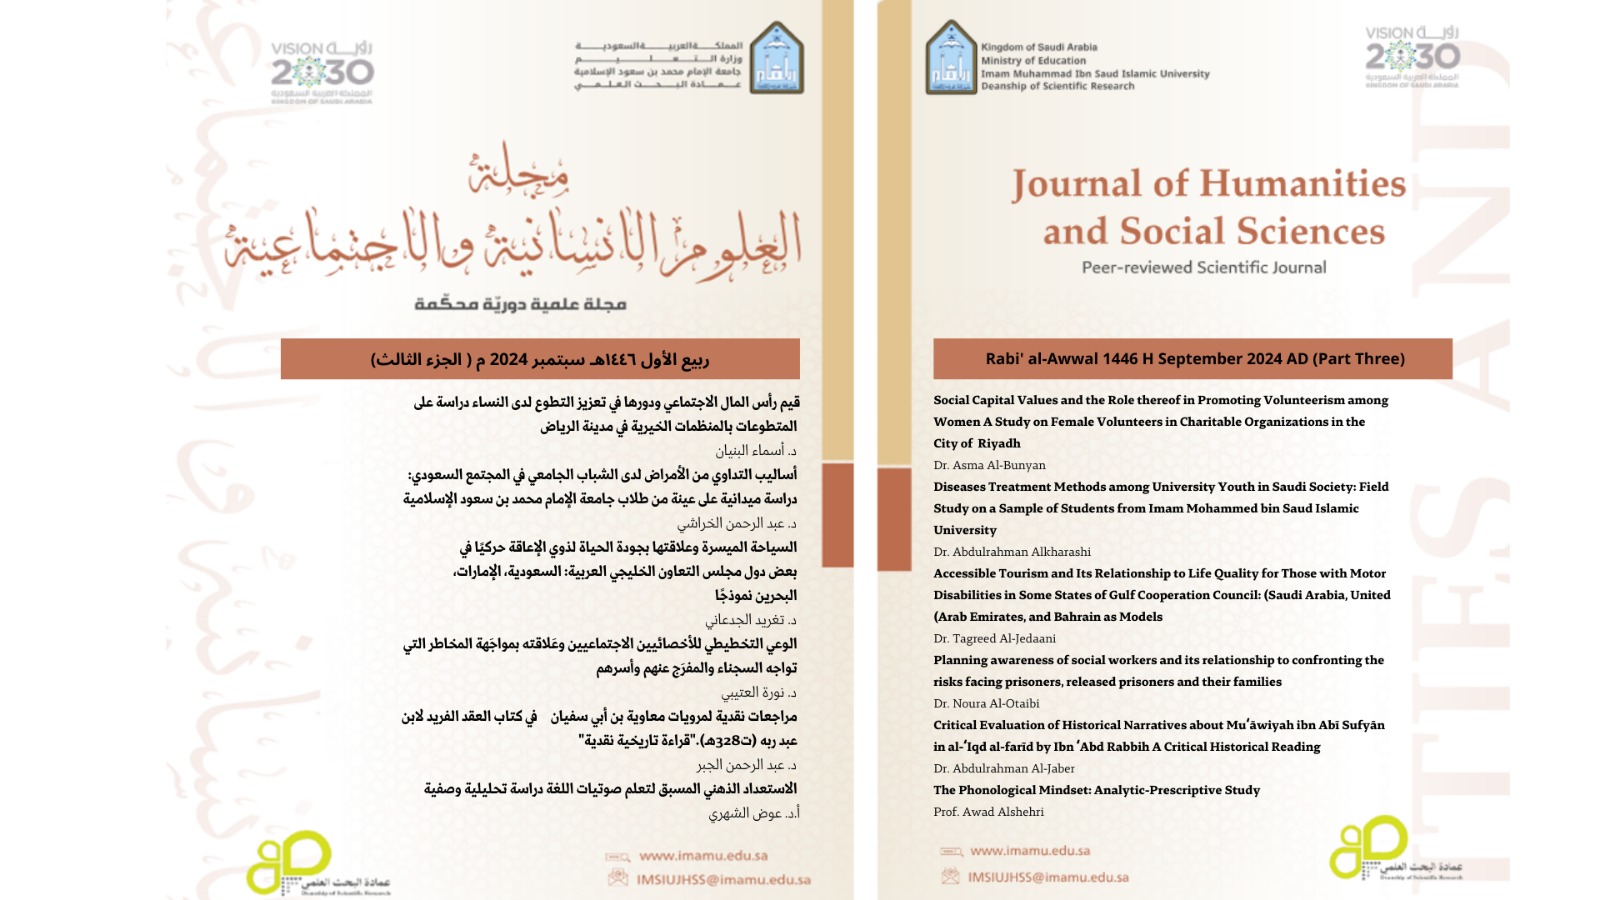 VISION رؤيــة
2030
المملكة العربية السعودية
KINGDOM OF SAUDI ARABIA
المملكــة العربيــــة السعوديــــــة
وزارة التـــــعـــلـــيـــــم
جامعة الإمام محمد بن سعود الإسلامية
عـــمــادة البـــحــث العـلــمــي
مجلة
العلوم الإنسانية والاجتماعية
مجلة علمية دوريّة محكّمة
ربيع الأول ١٤٤٦هـ سبتمبر 2024 م ( الجزء الثالث)
قيم رأس المال الاجتماعي ودورها في تعزيز التطوع لدى النساء دراسة على
المتطوعات بالمنظمات الخيرية في مدينة الرياض
د. أسماء البنيان
أساليب التداوي من الأمراض لدى الشباب الجامعي في المجتمع السعودي:
دراسة ميدانية على عينة من طلاب جامعة الإمام محمد بن سعود الإسلامية
د. عبد الرحمن الخراشي
السياحة الميسرة وعلاقتها بجودة الحياة لذوي الإعاقة حركيًا في
بعض دول مجلس التعاون الخليجي العربية: السعودية، الإمارات،
البحرين نموذجًا
د. تغريد الجدعاني
الوعي التخطيطي للأخصائيين الاجتماعيين وعَلاقته بمواجَهة المخاطر التي
تواجه السجناء والمفرَج عنهم وأسرهم
د. نورة العتيبي
مراجعات نقدية لمرويات معاوية بن أبي سفيان في كتاب العقد الفريد لابن
عبد ربه (ت328هـ)."قراءة تاريخية نقدية"
د. عبد الرحمن الجبر
الاستعداد الذهني المسبق لتعلم صوتيات اللغة دراسة تحليلية وصفية
أ.د. عوض الشهري
عمادة البحث العلمي
Deanship of Scientific Research
www.imamu.edu.sa
IMSIUJHSS@imamu.edu.sa
Kingdom of Saudi Arabia
Ministry of Education
Imam Muhammad Ibn Saud Islamic University
Deanship of Scientific Research
VISION رؤيــة
2030
المملكة العربية السعودية
KINGDOM OF SAUDI ARABIA
Journal of Humanities
and Social Sciences
Peer-reviewed Scientific Journal
Rabi' al-Awwal 1446 H September 2024 AD (Part Three)
Social Capital Values and the Role thereof in Promoting Volunteerism among
Women A Study on Female Volunteers in Charitable Organizations in the
City of Riyadh
Dr. Asma Al-Bunyan
Diseases Treatment Methods among University Youth in Saudi Society: Field
Study on a Sample of Students from Imam Mohammed bin Saud Islamic
University
Dr. Abdulrahman Alkharashi
Accessible Tourism and Its Relationship to Life Quality for Those with Motor
Disabilities in Some States of Gulf Cooperation Council: (Saudi Arabia, United
(Arab Emirates, and Bahrain as Models
Dr. Tagreed Al-Jedaani
Planning awareness of social workers and its relationship to confronting the
risks facing prisoners, released prisoners and their families
Dr. Noura Al-Otaibi
Critical Evaluation of Historical Narratives about Muʻāwiyah ibn Abī Sufyān
in al-ʻIqd al-farīd by Ibn ʻAbd Rabbih A Critical Historical Reading
Dr. Abdulrahman Al-Jaber
The Phonological Mindset: Analytic-Prescriptive Study
Prof. Awad Alshehri
www.imamu.edu.sa
IMSIUJHSS@imamu.edu.sa
عمادة البحث العلمي
Deanship of Scientific Research